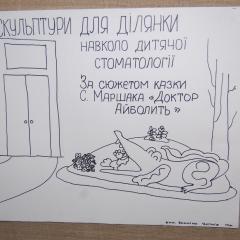 СКУЛЬПТУРИ ДЛЯ ДІЛЯНКИ
НАВКОЛО ДИТЯЧОЇ
СТОМАТОЛОГІЇ
ЗА СЮЖЕТОМ КАЗКИ
С. МАРШАКА «ДОКТОР
АЙБОЛИТЬ»